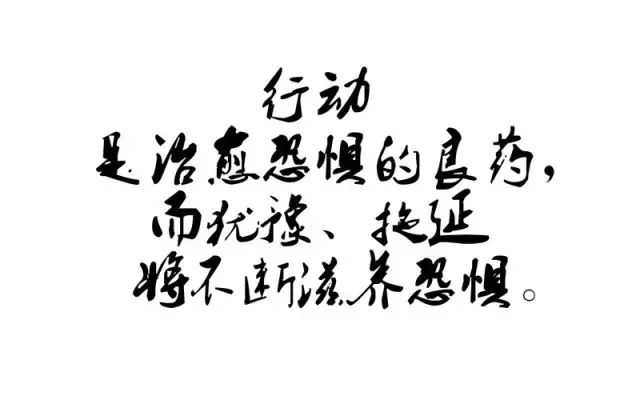 行动
是治愈恐惧的良药，
而犹豫、拖延
将不断滋养恐惧。